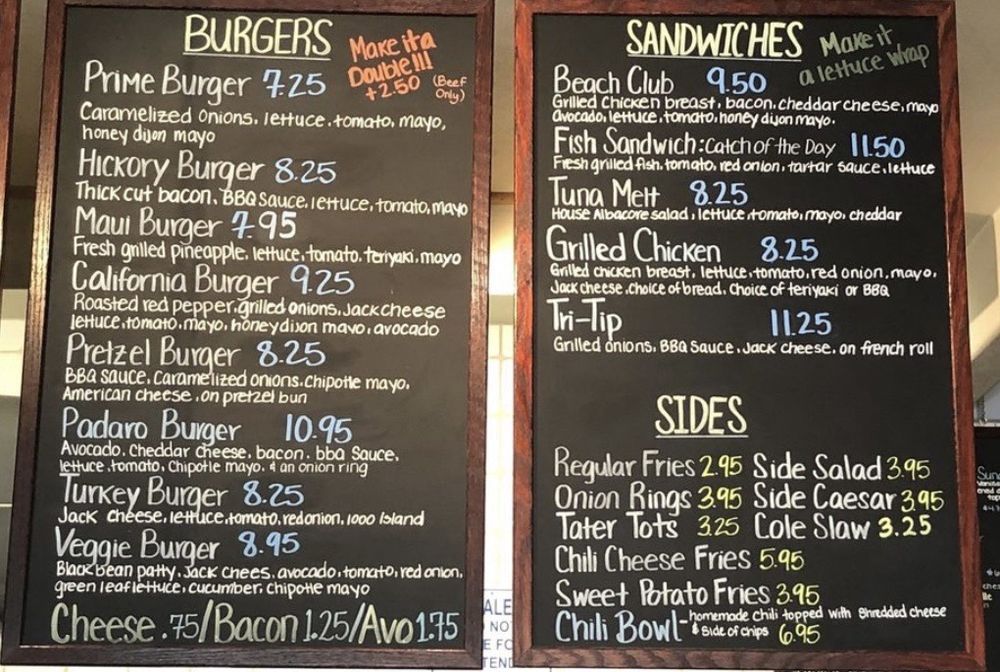 BURGERS
Make it a
Double!!!
+2.50 (Beef Only)
Prime Burger 7.25
Caramelized onions, lettuce, tomato, mayo,
honey dijon mayo
Hickory Burger 8.25
Thick cut bacon, BBQ Sauce, lettuce, tomato, mayo
Maui Burger 7.95
Fresh grilled pineapple, lettuce, tomato, teriyaki, mayo
California Burger 9.25
Roasted red pepper, grilled onions, Jack cheese
lettuce, tomato, mayo, honey dijon mayo, avocado
Pretzel Burger 8.25
BBQ sauce, Caramelized onions, chipotle mayo,
American cheese, on pretzel bun
Padaro Burger 10.95
Avocado, Cheddar cheese, bacon, bbq Sauce,
lettuce, tomato, Chipotle mayo, & an onion ring
Turkey Burger 8.25
Jack cheese, lettuce, tomato, red onion, 1000 Island
Veggie Burger 8.95
Black bean patty, Jack chees, avocado, tomato, red onion,
green leaf lettuce, cucumber, chipotle mayo
Cheese .75/Bacon 1.25/Avo 1.75
SANDWICHES
Make it
a lettuce wrap
Beach Club 9.50
Grilled chicken breast, bacon, cheddar cheese, mayo
avocado, lettuce, tomato, honey dijon mayo.
Fish Sandwich: Catch of the Day 11.50
Fresh grilled fish, tomato, red onion, tartar sauce, lettuce
Tuna Melt 8.25
House Albacore salad, lettuce, tomato, mayo, cheddar
Grilled Chicken 8.25
Grilled chicken breast, lettuce, tomato, red onion, mayo,
Jack cheese, choice of bread, Choice of teriyaki or BBQ
Tri-Tip 11.25
Grilled onions, BBQ Sauce, Jack cheese, on french roll
SIDES
Regular Fries 2.95 Side Salad 3.95
Onion Rings 3.95 Side Caesar 3.95
Tater Tots 3.25 Cole Slaw 3.25
Chili Cheese Fries 5.95
Sweet Potato Fries 3.95
Chili Bowl - homemade chili topped with Shredded cheese
& side of chips 6.95
ALE
NOT
E FO
TEND